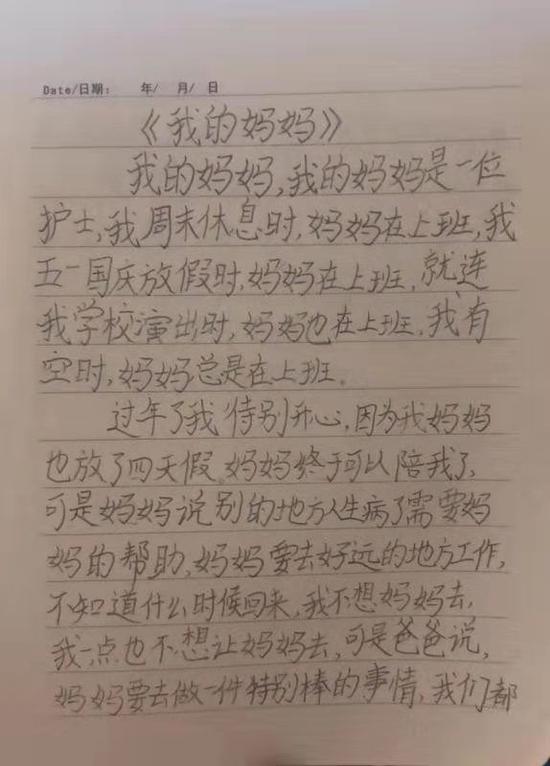 Date/日期： 年/ 月/ 日
《我的妈妈》
我的妈妈,我的妈妈是一位
护士,我周末休息时,妈妈在上班,我
五一国庆放假时,妈妈在上班.就连
我学校演出时,妈妈也在上班.我有
空时,妈妈总是在上班.
过年了我特别开心,因为我妈妈
也放了四天假.妈妈终于可以陪我了,
可是妈妈说别的地方人生病了需要妈
妈的帮助,妈妈要去好远的地方工作,
不知道什么时候回来,我不想妈妈去,
我一点也不想让妈妈去,可是爸爸说,
妈妈要去做一件特别棒的事情,我们都